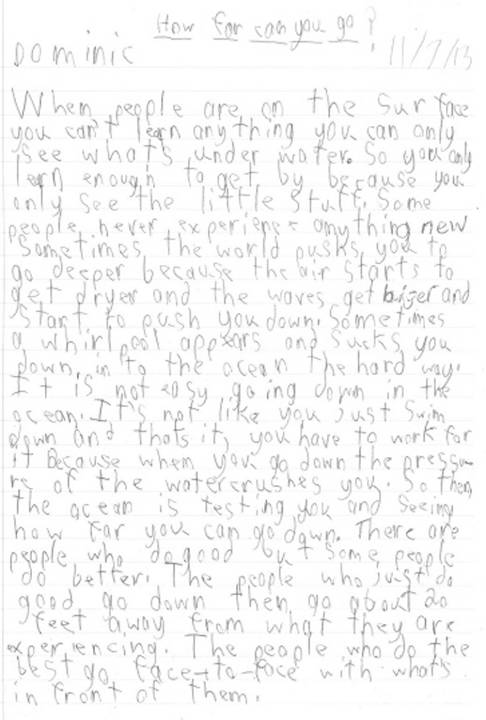 How far can you go?
Dominic 11/7/13
When people are on the surface
you can't learn any thing you can only
see what's under water. So you only
learn enough to get by because you
only see the little stuff. Some
people never experiense anything new
Sometimes the world pusks you to
go deeper because the air starts to
get dryer and the waves get biger and
start to push you down. Sometimes
a whirlpool appears and susks you
down in to the ocean the hard way.
It is not easy going down in the
ocean. It's not like you just swim
down and thats it, you have to work for
it Because when you go down the pressu-
re of the watercrushes you. So then
the ocean is testing you and Seeing
how far you can go down. There are
people who do good but some people
do better. The people who just do
good go down then go about 20
feet away from what they are
experiencing. The people who do the
best go face-to-face with what's
in front of them.